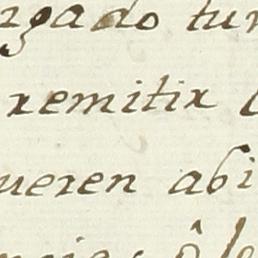 rgado tur
remitir
ueren abi